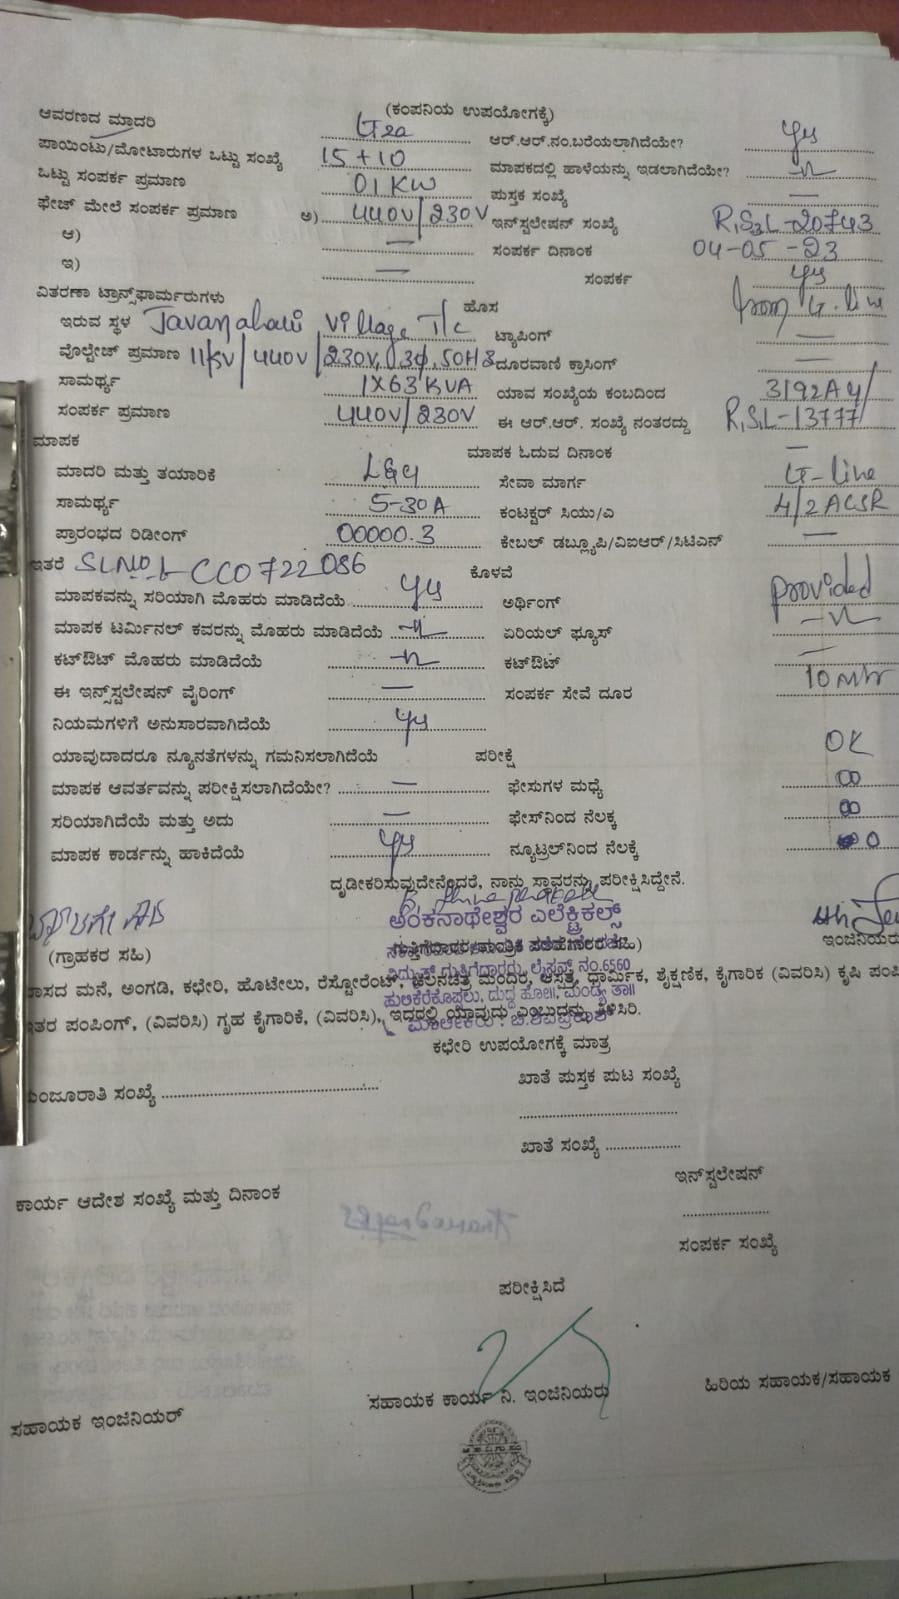 (ಕಂಪನಿಯ ಉಪಯೋಗಕ್ಕೆ)
ಆವರಣದ ಮಾದರಿ LT2a ಆರ್.ಆರ್.ನಂ.ಬರೆಯಲಾಗಿದೆಯೇ? yes
ಪಾಯಿಂಟು/ಮೋಟಾರುಗಳ ಒಟ್ಟು ಸಂಖ್ಯೆ 15+10 ಮಾಪಕದಲ್ಲಿ ಹಾಳೆಯನ್ನು ಇಡಲಾಗಿದೆಯೇ?
ಒಟ್ಟು ಸಂಪರ್ಕ ಪ್ರಮಾಣ 01 KW ಪುಸ್ತಕ ಸಂಖ್ಯೆ —
ಫೇಜ್ ಮೇಲೆ ಸಂಪರ್ಕ ಪ್ರಮಾಣ ಅ) 440V/230V ಇನ್‌ಸ್ಟಲೇಷನ್ ಸಂಖ್ಯೆ 20743
ಆ) — ಸಂಪರ್ಕ ದಿನಾಂಕ 04-05-23
ಇ) — ಸಂಪರ್ಕ yes
ವಿತರಣಾ ಟ್ರಾನ್ಸ್‌ಫಾರ್ಮರುಗಳು ಹೊಸ from LT-line
ಇರುವ ಸ್ಥಳ Javanahalli Village T/c ಟ್ಯಾಪಿಂಗ್ —
ವೋಲ್ಟೇಜ್ ಪ್ರಮಾಣ 11KV/440V/230V, 3φ, 50HZ ದೂರವಾಣಿ ಕ್ರಾಸಿಂಗ್ —
ಸಾಮರ್ಥ್ಯ 1X63 KVA ಯಾವ ಸಂಖ್ಯೆಯ ಕಂಬದಿಂದ
ಸಂಪರ್ಕ ಪ್ರಮಾಣ 440V/230V ಈ ಆರ್.ಆರ್. ಸಂಖ್ಯೆ ನಂತರದ್ದು 13777
ಮಾಪಕ ಮಾಪಕ ಓದುವ ದಿನಾಂಕ —
ಮಾದರಿ ಮತ್ತು ತಯಾರಿಕೆ L&G ಸೇವಾ ಮಾರ್ಗ LT-line
ಸಾಮರ್ಥ್ಯ 5-30A ಕಂಟಕ್ಟರ್ ಸಿಯು/ಎ 4/2 ACSR
ಪ್ರಾರಂಭದ ರಿಡೀಂಗ್ 00000.3 ಕೇಬಲ್ ಡಬ್ಲ್ಯೂಪಿ/ವಿಐಆರ್/ಸಿಟಿಎನ್ —
ಇತರೆ SLNO CC0722086 ಕೊಳವೆ
ಮಾಪಕವನ್ನು ಸರಿಯಾಗಿ ಮೊಹರು ಮಾಡಿದೆಯೆ yes ಅರ್ಥಿಂಗ್ provided
ಮಾಪಕ ಟರ್ಮಿನಲ್ ಕವರನ್ನು ಮೊಹರು ಮಾಡಿದೆಯೆ ಏರಿಯಲ್ ಫ್ಯೂಸ್
ಕಟ್‌ಔಟ್ ಮೊಹರು ಮಾಡಿದೆಯೆ ಕಟ್‌ಔಟ್ —
ಈ ಇನ್ಸ್‌ಸ್ಟಲೇಷನ್ ವೈರಿಂಗ್ — ಸಂಪರ್ಕ ಸೇವೆ ದೂರ 10 Mtr
ನಿಯಮಗಳಿಗೆ ಅನುಸಾರವಾಗಿದೆಯೆ yes
ಯಾವುದಾದರೂ ನ್ಯೂನತೆಗಳನ್ನು ಗಮನಿಸಲಾಗಿದೆಯೆ ಪರೀಕ್ಷೆ OK
ಮಾಪಕ ಆವರ್ತವನ್ನು ಪರೀಕ್ಷಿಸಲಾಗಿದೆಯೇ? — ಫೇಸುಗಳ ಮಧ್ಯೆ ∞
ಸರಿಯಾಗಿದೆಯೆ ಮತ್ತು ಅದು — ಫೇಸ್‌ನಿಂದ ನೆಲಕ್ಕೆ ∞
ಮಾಪಕ ಕಾರ್ಡನ್ನು ಹಾಕಿದೆಯೆ yes ನ್ಯೂಟ್ರಲ್‌ನಿಂದ ನೆಲಕ್ಕೆ 0
ದೃಢೀಕರಿಸುವುದೇನೆಂದರೆ, ನಾನು ಸ್ಥಾವರನ್ನು ಪರೀಕ್ಷಿಸಿದ್ದೇನೆ.
ಅಂಕನಾಥೇಶ್ವರ ಎಲೆಕ್ಟ್ರಿಕಲ್ಸ್
(ಗ್ರಾಹಕರ ಸಹಿ) ಇಂಜಿನಿಯರು
ವಿದ್ಯುತ್ ಗುತ್ತಿಗೆದಾರರು, ಲೈಸೆನ್ಸ್ ನಂ.6560
ವಾಸದ ಮನೆ, ಅಂಗಡಿ, ಕಛೇರಿ, ಹೋಟೇಲು, ರೆಸ್ಟೋರೆಂಟ್, ಚಲನಚಿತ್ರ ಮಂದಿರ, ಆಸ್ಪತ್ರೆ, ಧಾರ್ಮಿಕ, ಶೈಕ್ಷಣಿಕ, ಕೈಗಾರಿಕ (ವಿವರಿಸಿ) ಕೃಷಿ ಪಂಪಿ
ಹುಲಿಕೆರೆಕೊಪ್ಪಲು, ದುದ್ದ ಹೋ॥, ಮಂಡ್ಯ ತಾ॥
ಇತರ ಪಂಪಿಂಗ್, (ವಿವರಿಸಿ) ಗೃಹ ಕೈಗಾರಿಕೆ, (ವಿವರಿಸಿ), ಇದರಲ್ಲಿ ಯಾವುದು ಎಂಬುದನ್ನು ತಿಳಿಸಿರಿ.
ಕಛೇರಿ ಉಪಯೋಗಕ್ಕೆ ಮಾತ್ರ
ಮಂಜೂರಾತಿ ಸಂಖ್ಯೆ ಖಾತೆ ಪುಸ್ತಕ ಪುಟ ಸಂಖ್ಯೆ
ಖಾತೆ ಸಂಖ್ಯೆ
ಕಾರ್ಯ ಆದೇಶ ಸಂಖ್ಯೆ ಮತ್ತು ದಿನಾಂಕ ಇನ್‌ಸ್ಟಲೇಷನ್
ಸಂಪರ್ಕ ಸಂಖ್ಯೆ
ಪರೀಕ್ಷಿಸಿದೆ
ಸಹಾಯಕ ಇಂಜಿನಿಯರ್ ಸಹಾಯಕ ಕಾರ್ಯ ನಿ. ಇಂಜಿನಿಯರು ಹಿರಿಯ ಸಹಾಯಕ/ಸಹಾಯಕ